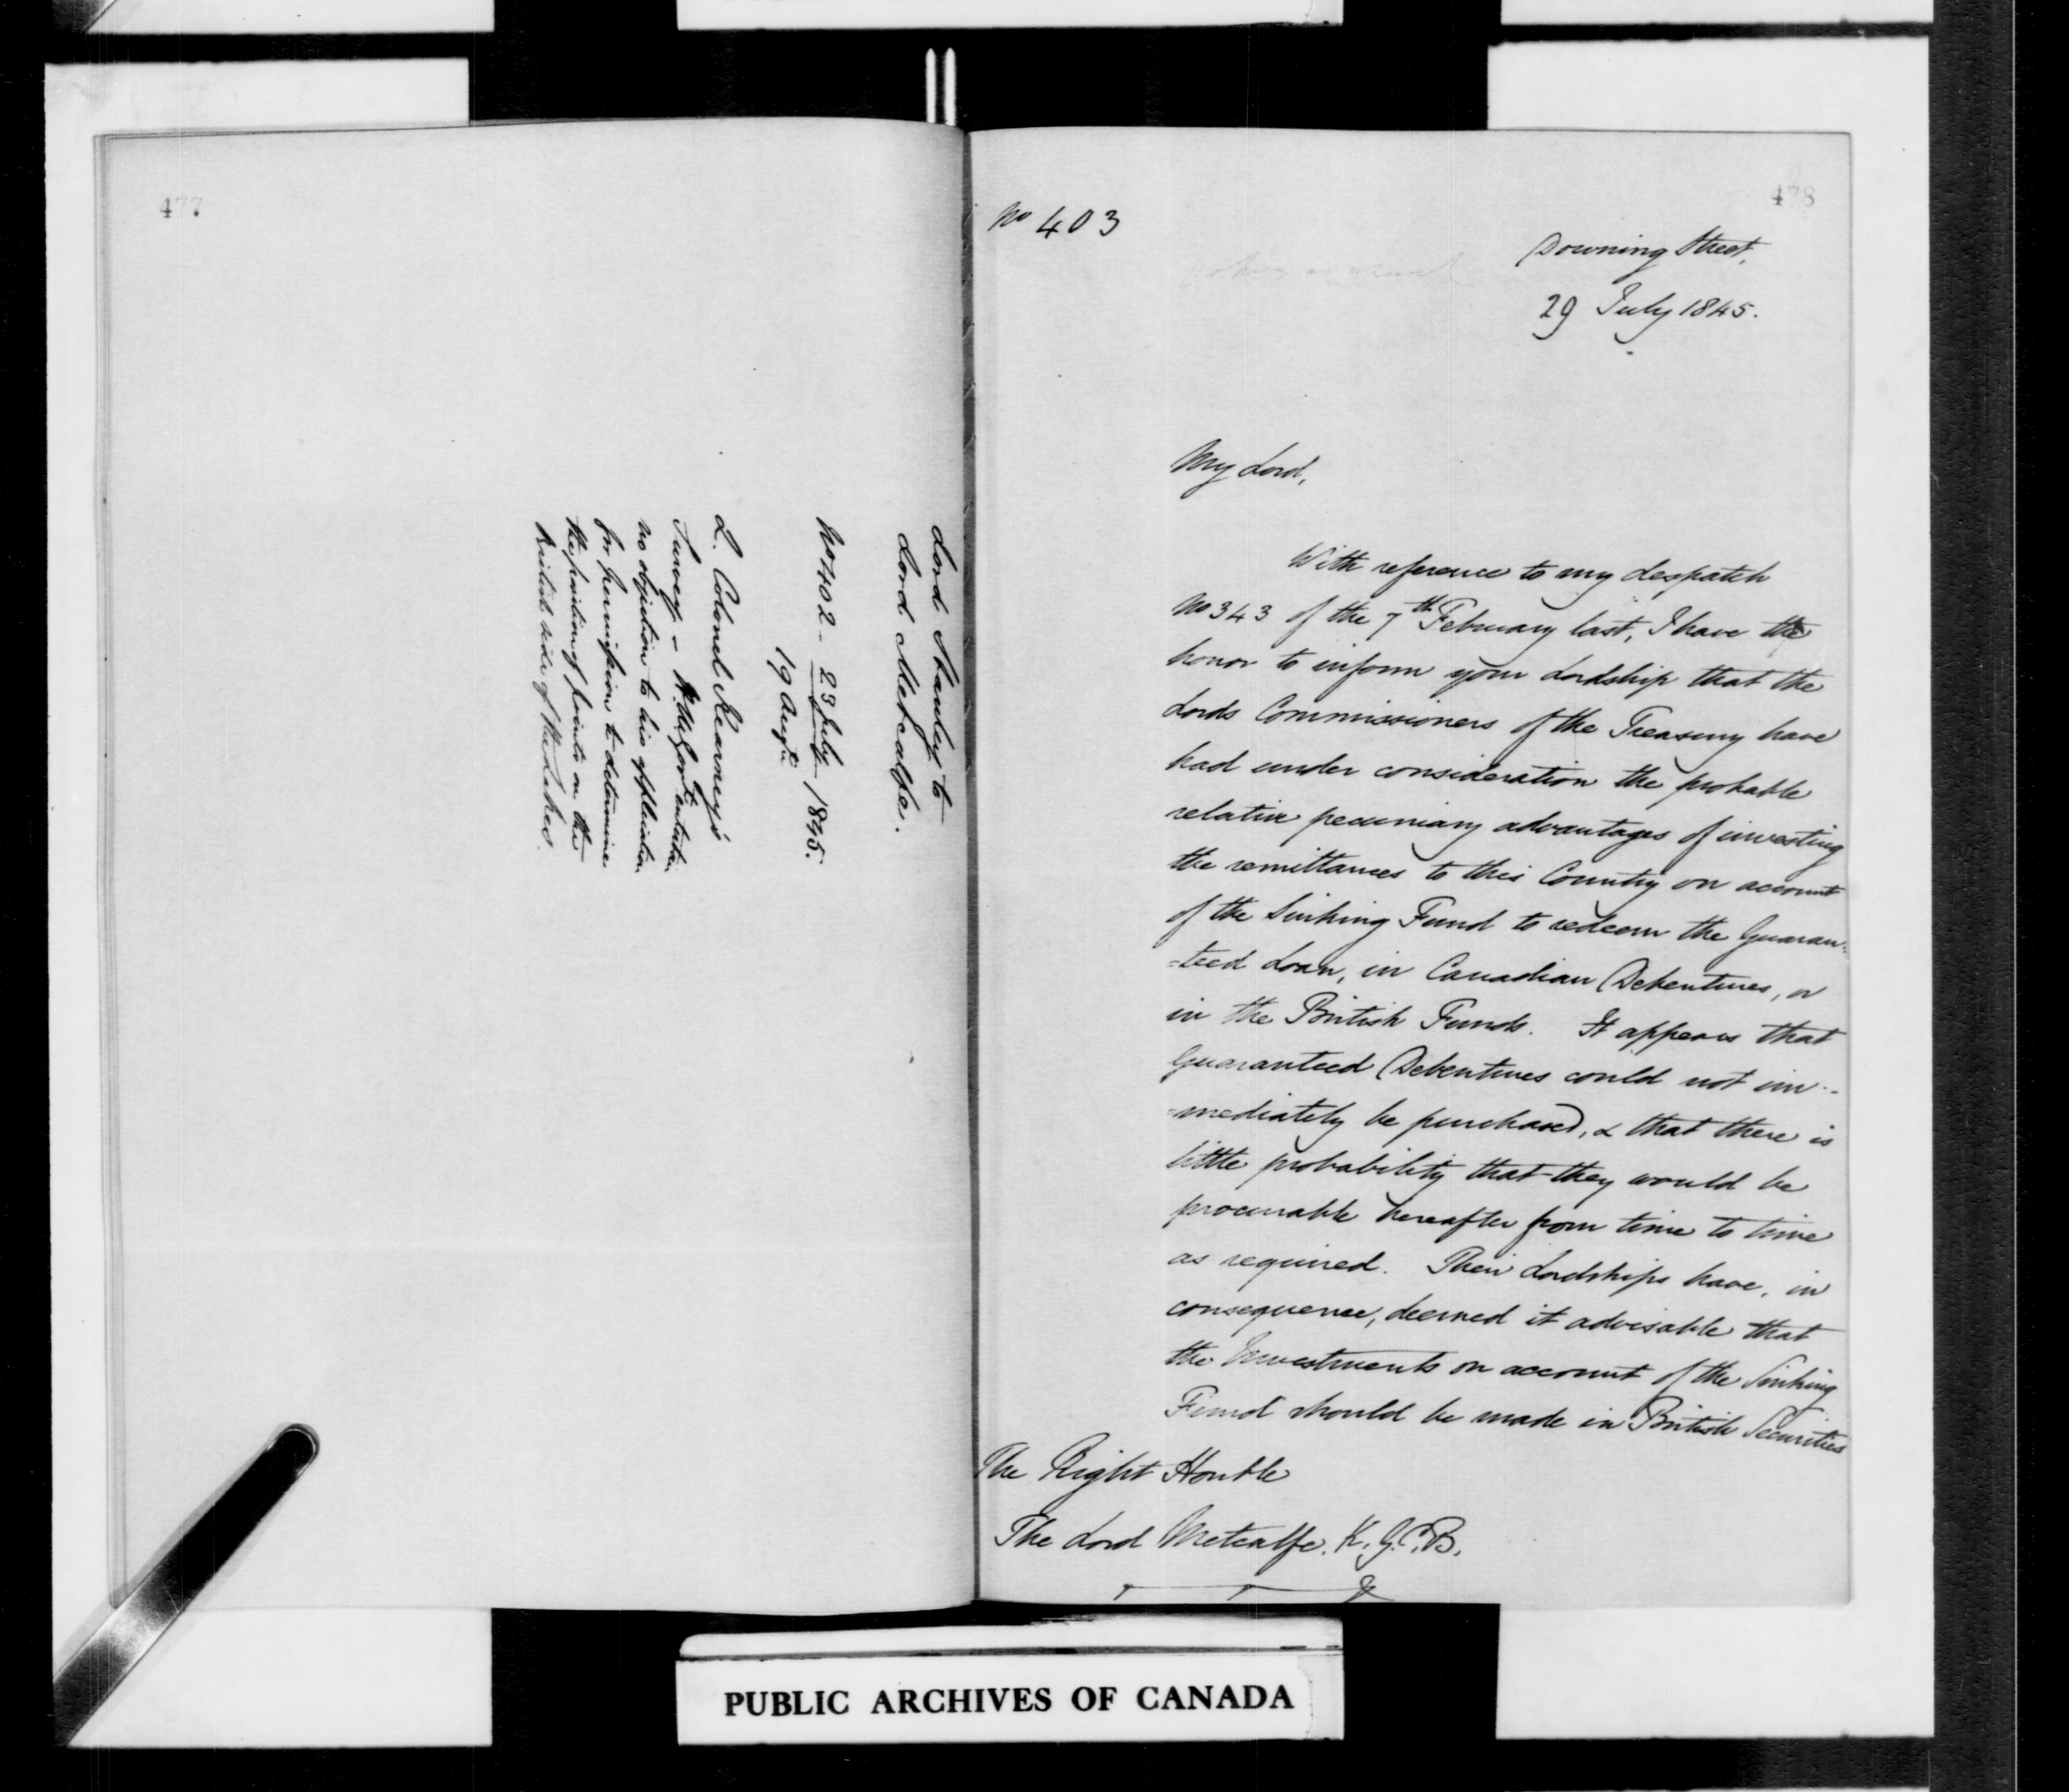 477
Lord Stanley to
Lord Metcalfe.
No 402 - 29 July 1845.
19 Augt
L. Colonel Kearney's
Survey - H. M. Govt entertain
no objection to his application
for permission to determine
the position of points on the
British side of the Lakes.
478
No 403
Downing Street,
29 July 1845.
My Lord,
With reference to my despatch
No 343 of the 7th February last, I have the
honor to inform your Lordship that the
Lords Commissioners of the Treasury have
had under consideration the probable
relative pecuniary advantages of investing
the remittances to this Country on account
of the Sinking Fund to redeem the Guaran-
=teed Loan, in Canadian Debentures, or
in the British Funds. It appears that
Guaranteed Debentures could not im-
=mediately be purchased, & that there is
little probability that they would be
procurable hereafter from time to time
as required. Their Lordships have, in
consequence, deemed it advisable that
the Investments on account of the Sinking
Fund should be made in British Securities
The Right Honble
The Lord Metcalfe. K.G.C.B.
&
PUBLIC ARCHIVES OF CANADA